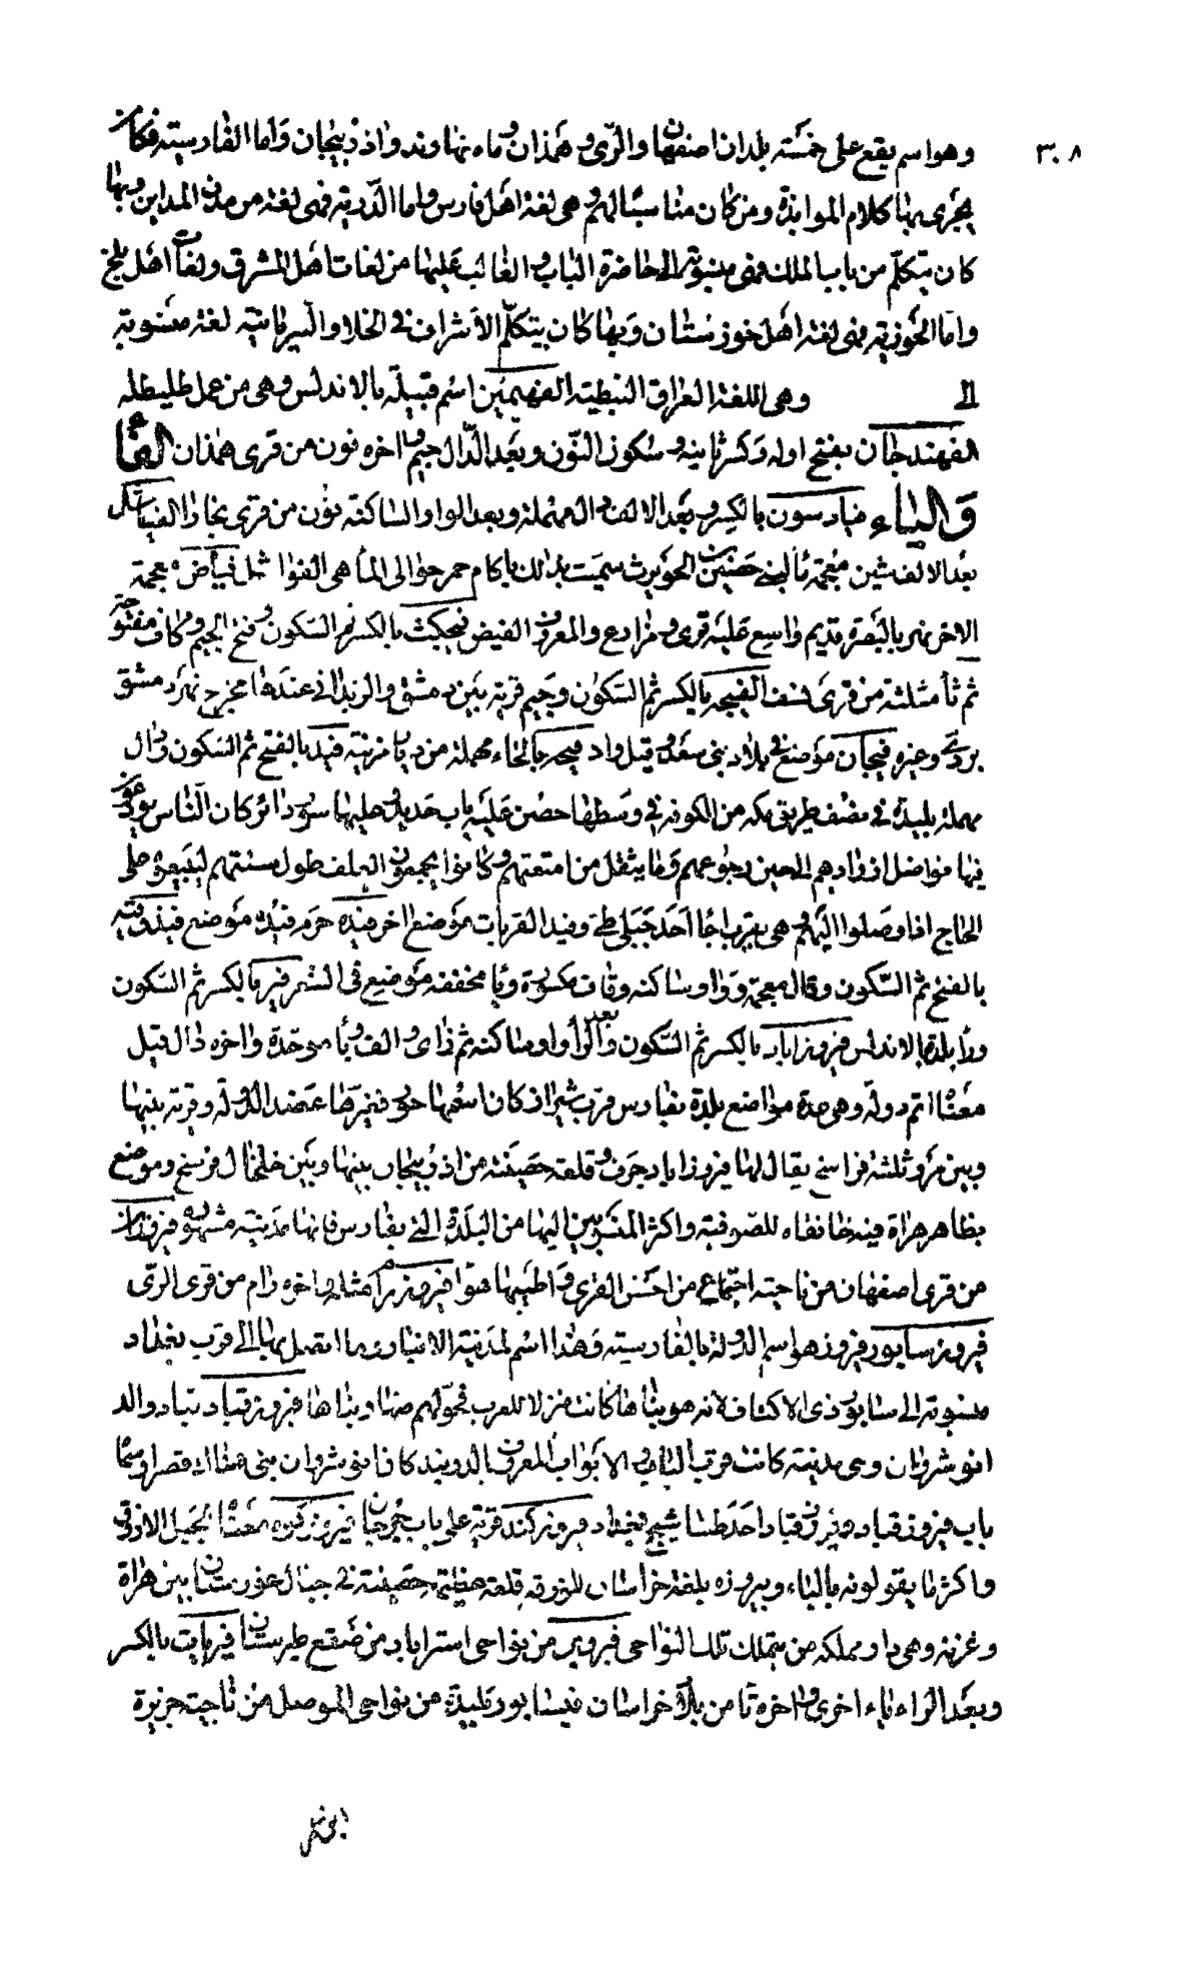 ٣٠٨
وهو اسم يقع على خمسة بلدان اصفهان والرى وهمذان وماه نهاوند واذربيجان واما الفارسية فكان
يجرى بها كلام الموابذة ومن كان مناسبا لهم وهى لغة اهل فارس واما الدرية فهى لغة من مدن المداين وبها
كان يتكلم من بباب الملك فهى منسوبة الى حاضرة الباب والغالب عليها من لغات اهل المشرق ولغات اهل بلخ
واما الخوزية فهى لغة اهل خوزستان وبها كان يتكلم الاشراف فى الخلا والسريانية لغة منسوبة
الى وهى اللغة العراق النبطية الفهميين اسم قبيلة بالاندلس وهى من عمل طليطله
الفهندجان بفتح اوله وكسر ثانيه وسكون النون وبعد الدال جيم واخره نون من قرى همذان الفا
والياء فيادسون بالكسر وبعد الالف دال مهملة وبعد الواو الساكنة نون من قرى بخارا الفياشل
بعد الالف شين معجمة ماء لبنى حصين بن الحويرث سميت بذلك باكام حمر حوالى الماء هى الفوا شل فياض معجمة
الاخر نهر بالبصرة قديم واسع عليه قرى ومزارع والمعروف الفيض فيجكث بالكسر ثم السكون وفتح الجيم وكاف مفتوحة
ثم ثاء مثلثة من قرى نسف الفيجة بالكسر ثم السكون وجيم قرية بين دمشق والزبدانى عندها مخرج نهر دمشق
بردى وغيره فيجان موضع فى بلاد بنى سعد وقيل واد فيحة بالحاء مهملة من ديار مزينة فيد بالفتح ثم السكون ودال
مهملة بليدة فى نصف طريق مكه من الكوفه فى وسطها حصن عليه باب حديد وعليها سور دائر كان الناس يودعون
فيها فواضل ازوادهم الى حين رجوعهم وما يثقل من امتعتهم وكانوا يجمعون العلف طول سنتهم ليبيعوه على
الحاج اذا وصلوا اليهم وهى بقرب اجا احد جبلى طى وفيد القريات موضع اخر فيده حزم فيده موضع فيذوقية
بالفتح ثم السكون وذال معجمة وواو ساكنه وقاف مكسورة ويا مخففه موضع فى الشعر فير بالكسر ثم السكون
وراء بلدة بالاندلس فيروزاباد بالكسر ثم السكون وبعد الراء واو ساكنه ثم زاى والف وباء موحدة واخره ذال قيل
معناه اتم دولة وهى عدة مواضع بلدة بفارس قرب شيراز كان اسمها جور فغيرها عضد الدولة وقرية بينها
وبين مرو ثلثة فراسخ يقال لها فيروزاباد خرق وقلعة حصينة من اذربيجان بينها وبين خلخال فرسخ وموضع
بظاهر هراة فيه خانقاه للصوفية واكثر المنسوبين اليها من البلدة التى بفارس فانها مدينة مشهورة فيروزان
من قرى اصفهان من ناحية اجتماع من احسن القرى واطيبها هواء فيروزرام مثله واخره رام من قرى الرى
فيروز سابور فيروز هو اسم الدولة بالفارسية وهذا اسم لمدينة الانبار وما اتصل بها الى قرب بغداد
منسوبة الى سابور ذى الاكتاف لانه هو بناها كانت منزلا للعرب فحولهم منها وبناها فيروزقباد بقباد والد
انوشروان وهى مدينة كانت قرب الباب والابواب المعروف بالدربند كان انوشروان بنى هناك قصرا وسماه
باب فيروزقباد وفيروزقباد احد طساسيج بغداد فيروزكند قرية على باب جرجان فيروزكوه معناه الجبل الازرق
واكثر ما يقولونه بالباء وبيروزه بلغة خراسان للزرقه قلعة عظيمة حصينة فى جبال غورستان بين هراة
وغزنه وهى دار مملكه من يتملك تلك النواحى فيروير من نواحى استراباد من صقع طبرستان فيريابت بالكسر
وبعد الراء ياء اخرى واخره تاء من بلاد خراسان فيسابور بليدة من نواحى الموصل من ناحية جزيرة
ابن عمر